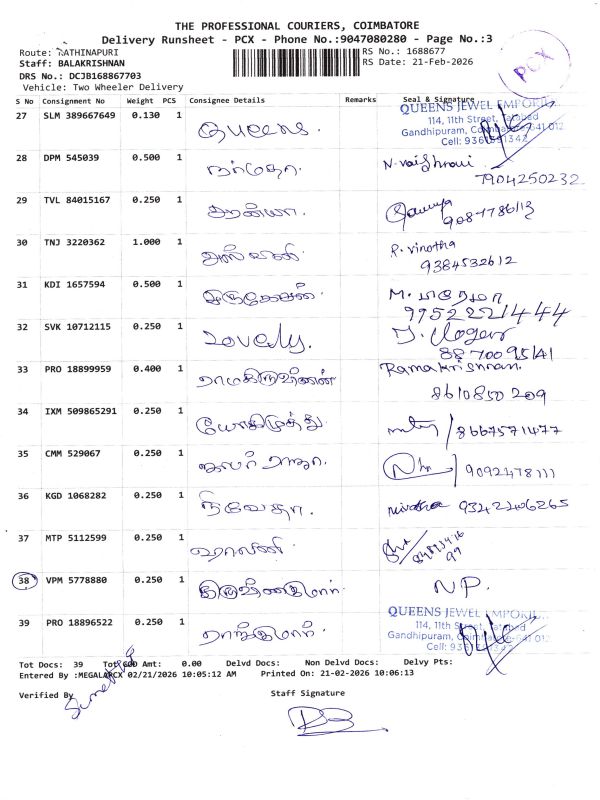 THE PROFESSIONAL COURIERS, COIMBATORE
Delivery Runsheet - PCX - Phone No.:9047080280 - Page No.:3
Route: RATHINAPURI
RS No.: 1688677
Staff: BALAKRISHNAN
RS Date: 21-Feb-2026
DRS No.: DCJB168867703
Vehicle: Two Wheeler Delivery
PCX
S No Consignment No Weight PCS Consignee Details Remarks Seal & Signature
27 SLM 389667649 0.130 1 Queens. QUEENS JEWEL EMPORI
114, 11th Street, Tatabad
Gandhipuram, Coimbatore-641 012
28 DPM 545039 0.500 1 நர்மதா. N. vaishnavi
7904250232
29 TVL 84015167 0.250 1 சரண்யா.
30 TNJ 3220362 1.000 1 அஸ்வினி. R. vinotha
9384532612
31 KDI 1657594 0.500 1 முருகேசன். M.
9952221444
32 SVK 10712115 0.250 1 Lovely.
33 PRO 18899959 0.400 1 ராமகிருஷ்ணன் Ramakrishnan.
8610850209
34 IXM 509865291 0.250 1 யோகிமுத்து 8667571477
35 CMM 529067 0.250 1 9092478111
36 KGD 1068282 0.250 1 நிவேதா. nivetha 9342206265
37 MTP 5112599 0.250 1 ஹரிணி
38 VPM 5778880 0.250 1 கிருஷ்ணகுமார். N.P.
39 PRO 18896522 0.250 1 QUEENS JEWEL EMPORI
114, 11th Street, Tatabad
Gandhipuram, Coimbatore-641 012
Tot Docs: 39 Tot COD Amt: 0.00 Delvd Docs: Non Delvd Docs: Delvy Pts:
Entered By :MEGALAPCX 02/21/2026 10:05:12 AM Printed On: 21-02-2026 10:06:13
Verified By
Staff Signature